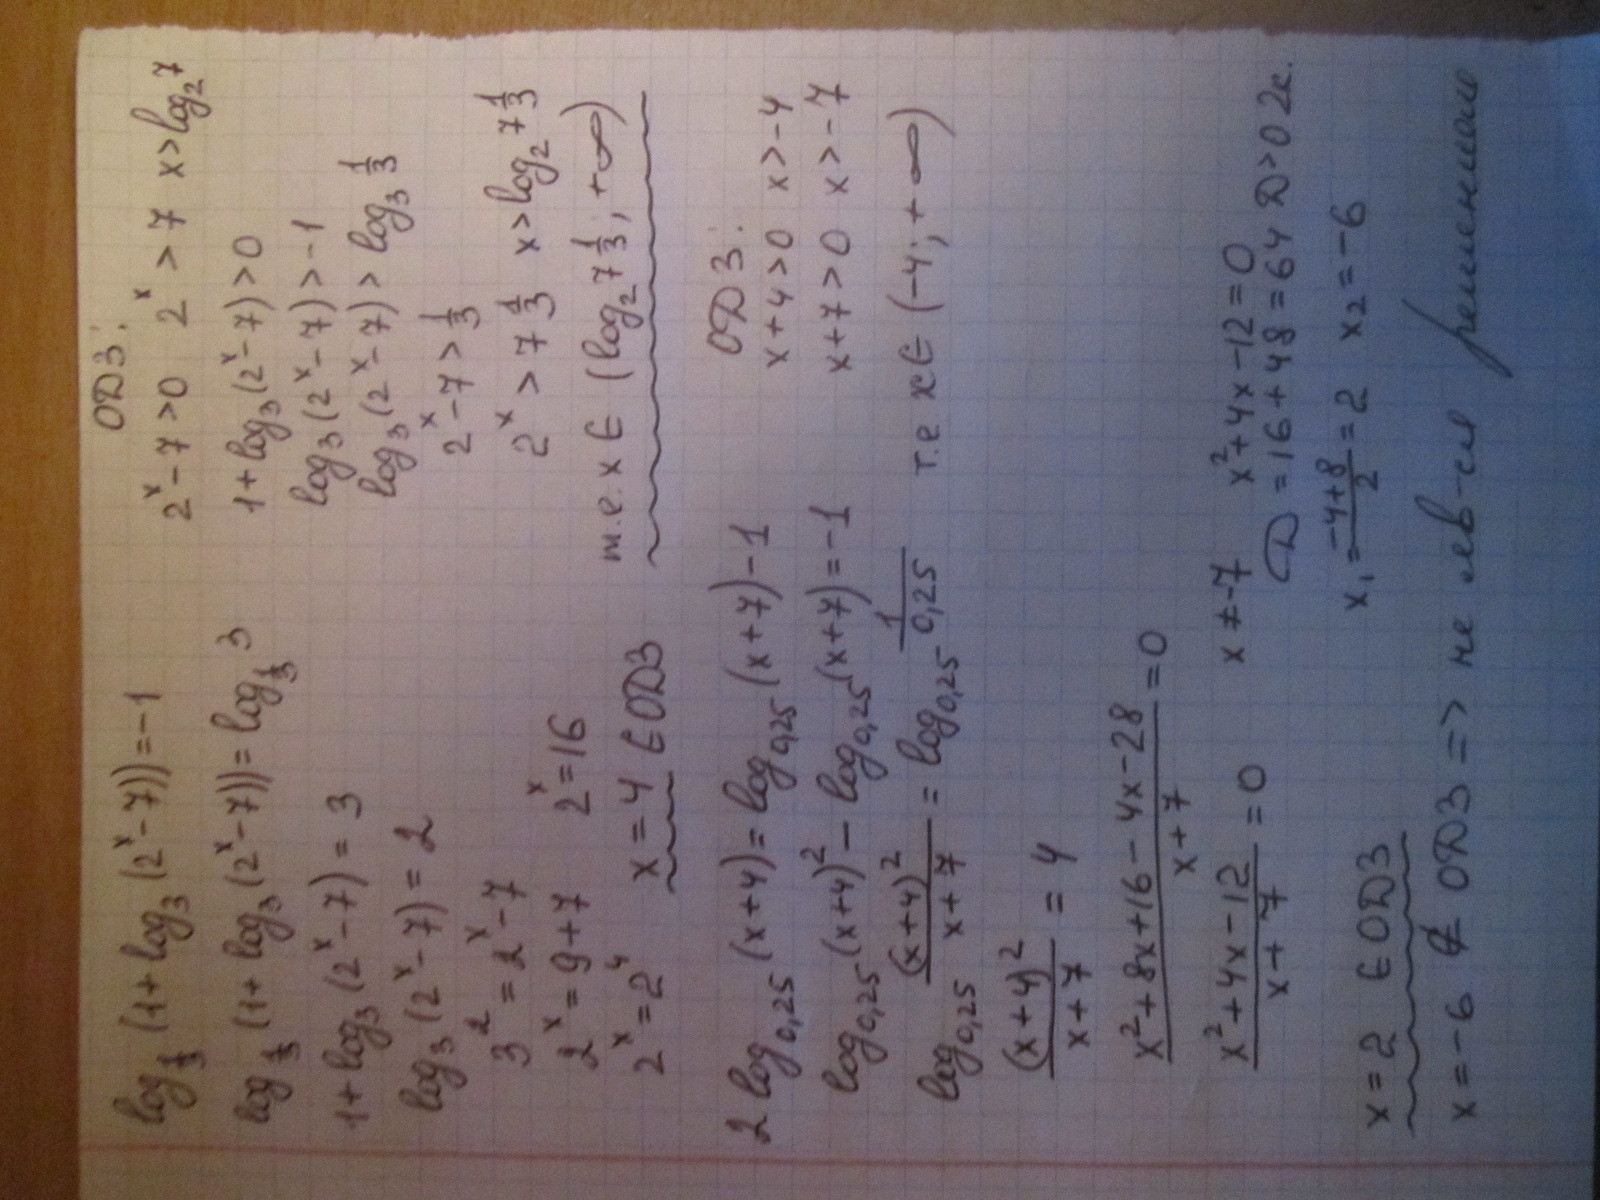 log_{1/3}(1+log_3(2^x-7))=-1
log_{1/3}(1+log_3(2^x-7))=log_{1/3}3
1+log_3(2^x-7)=3
log_3(2^x-7)=2
3^2=2^x-7
2^x=9+7 2^x=16
2^x=2^4 x=4 ∈ ОДЗ
ОДЗ:
2^x-7>0 2^x>7 x>log_2 7
1+log_3(2^x-7)>0
log_3(2^x-7)>-1
log_3(2^x-7)>log_3 1/3
2^x-7>1/3
2^x>7 1/3 x>log_2 7 1/3
т.е. x∈(log_2 7 1/3; +∞)
2 log_{0,25}(x+4)=log_{0,25}(x+7)-1
log_{0,25}(x+4)^2-log_{0,25}(x+7)=-1
log_{0,25} (x+4)^2/(x+7) = log_{0,25} 1/0,25
(x+4)^2/(x+7) = 4
ОДЗ:
x+4>0 x>-4
x+7>0 x>-7
т.е x∈(-4; +∞)
(x^2+8x+16-4x-28)/(x+7)=0
(x^2+4x-12)/(x+7)=0 x≠-7 x^2+4x-12=0
D=16+48=64 D>0 2к.
x_1=(-4+8)/2=2 x_2=-6
x=2 ∈ ОДЗ
x=-6 ∉ ОДЗ => не явл-ся решением